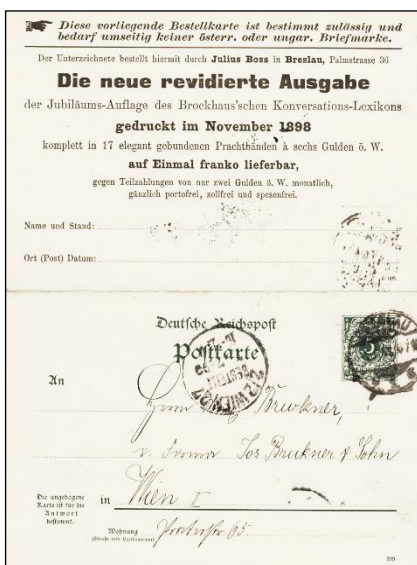 Diese vorliegende Bestellkarte ist bestimmt zulässig und
bedarf umseitig keiner österr. oder ungar. Briefmarke.
Der Unterzeichnete bestellt hiermit durch Julius Boss in Breslau, Palmstrasse 36
Die neue revidierte Ausgabe
der Jubiläums-Auflage des Brockhaus'schen Konversations-Lexikons
gedruckt im November 1898
komplett in 17 elegant gebundenen Prachtbänden à sechs Gulden ö. W.
auf Einmal franko lieferbar,
gegen Teilzahlungen von nur zwei Gulden ö. W. monatlich,
gänzlich portofrei, zollfrei und spesenfrei.
Name und Stand:
Ort (Post) Datum:
Deutsche Reichspost
Postkarte
An
Herrn Bruckner,
v. Firma Jos Bruckner & Sohn
in Wien I
Die angebogene
Karte ist für die
Antwort
bestimmt.
Wohnung
(Straße und Hausnummer)
Praterstr. 65.